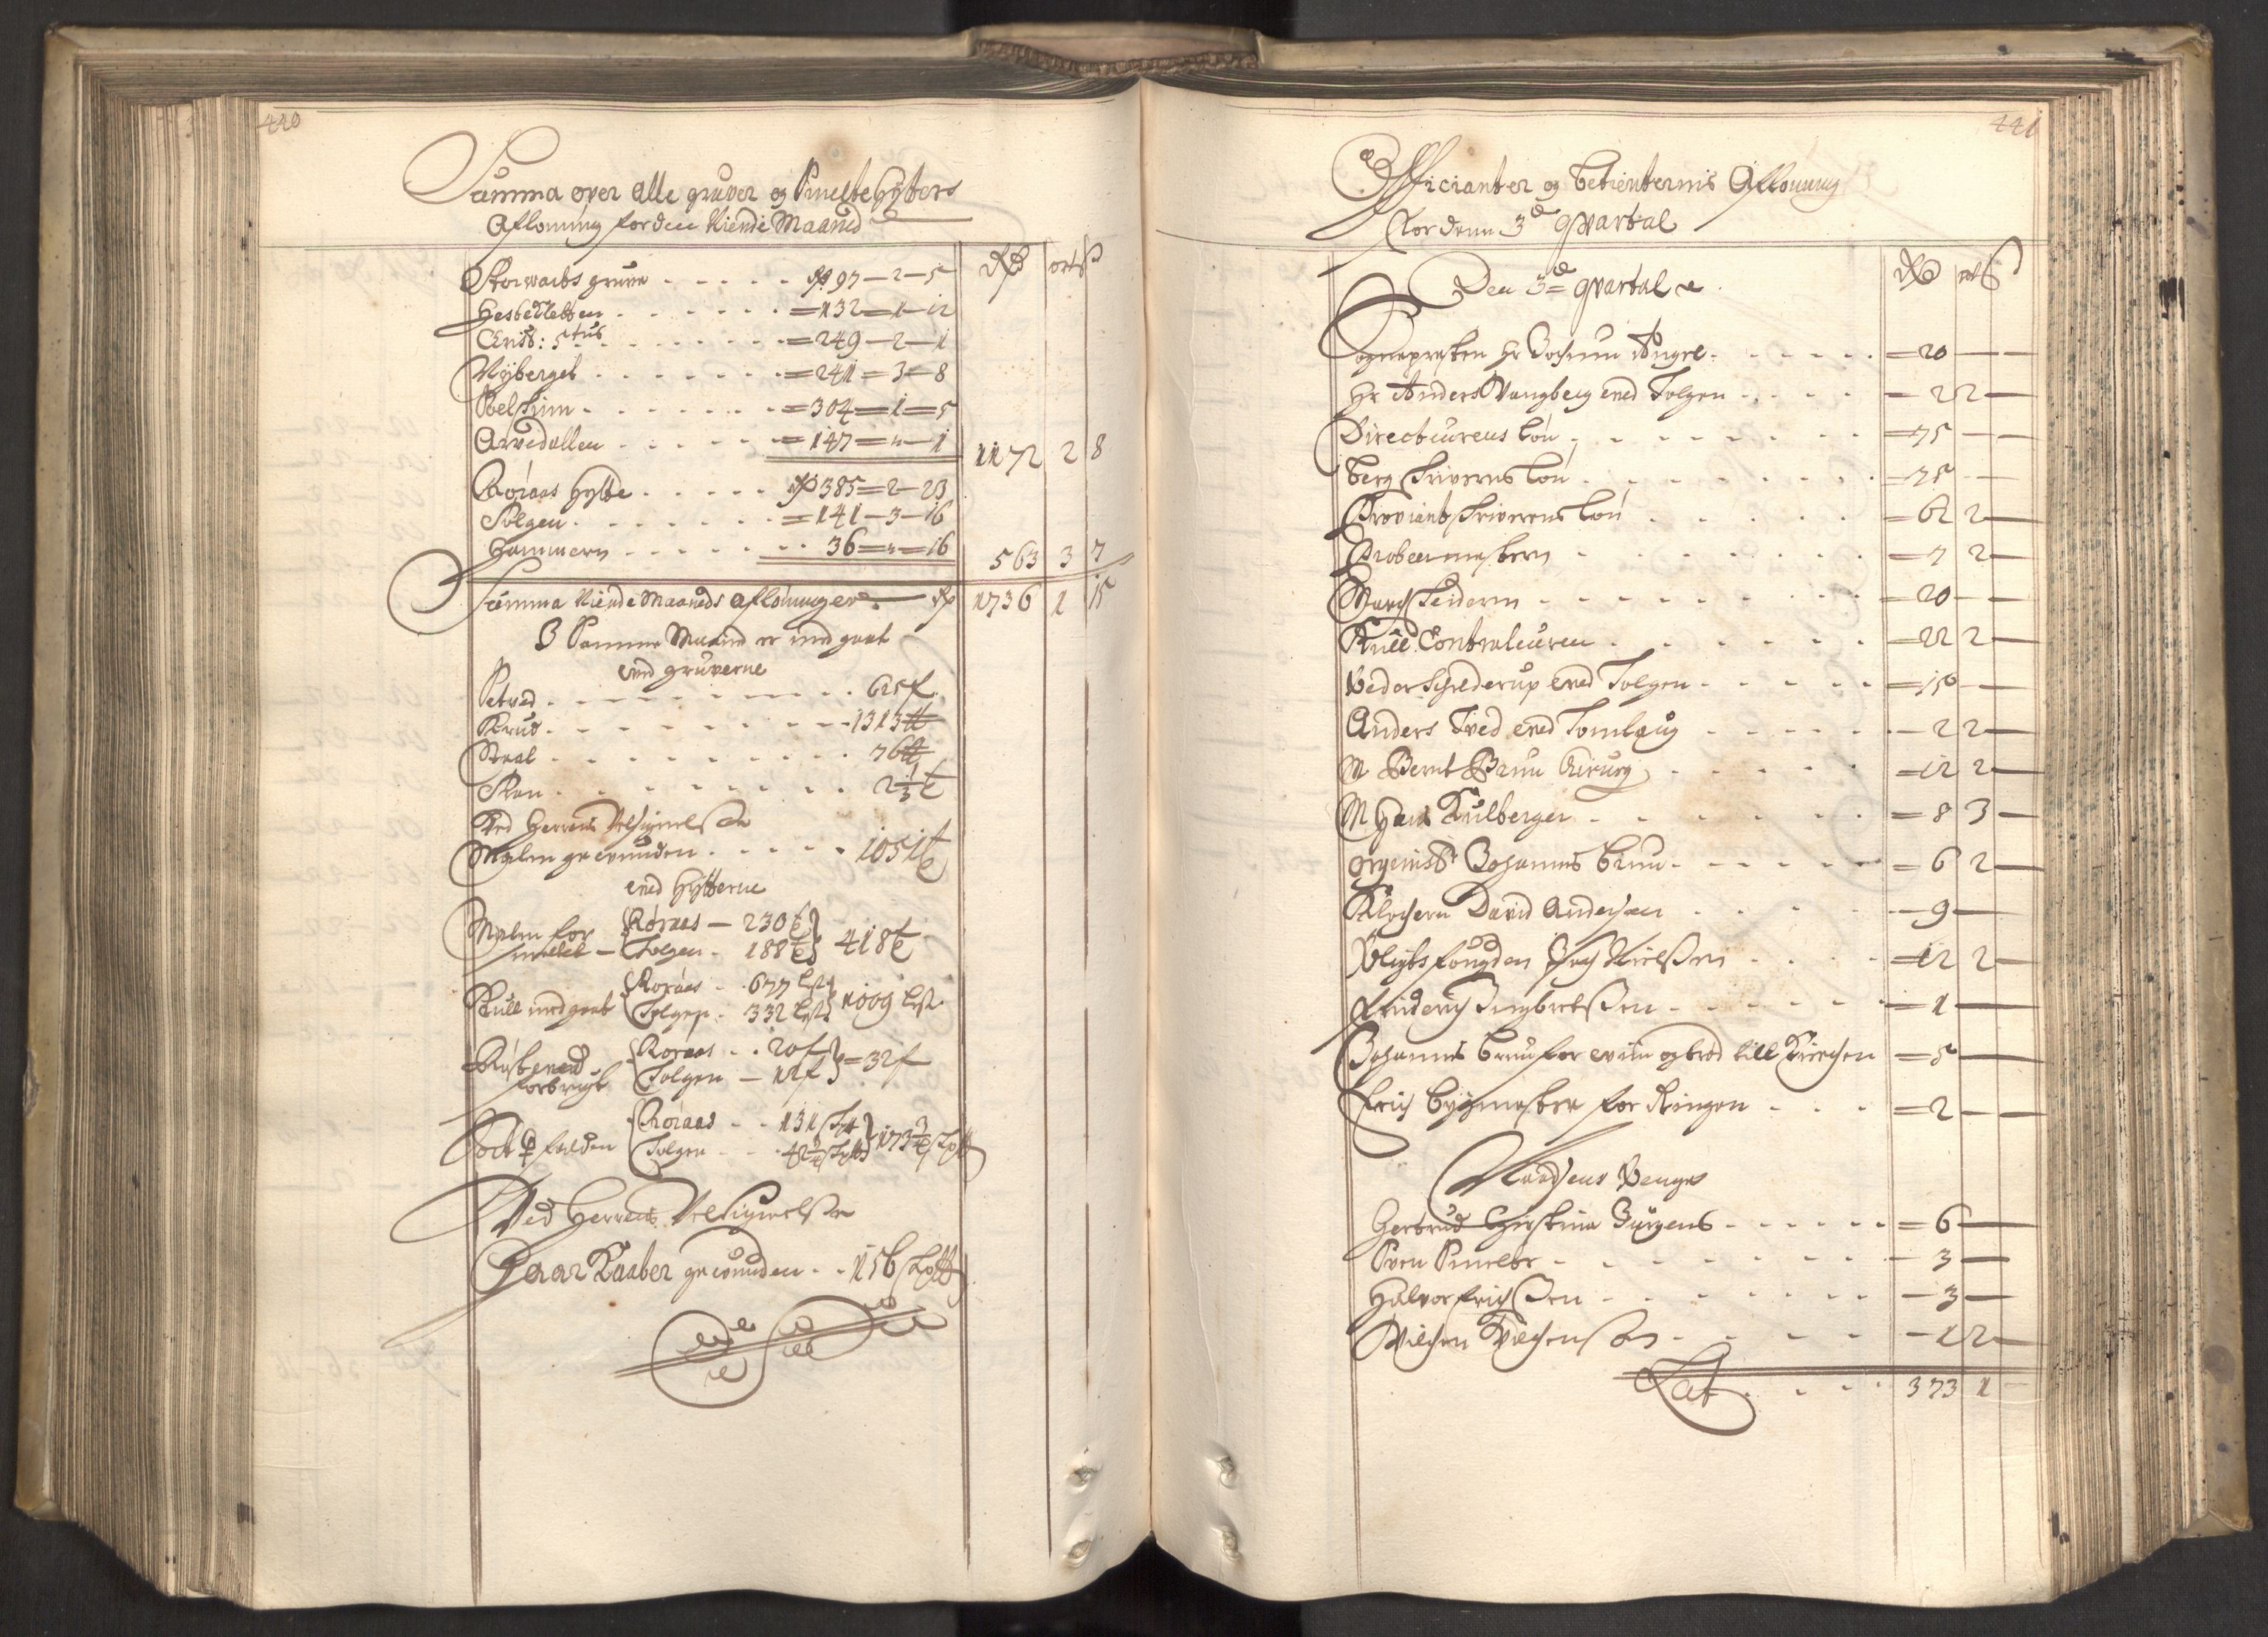 440
Summa over alle gruver og Smeltehytters
Aflöning for den Niende Maaned
Rdr ort ß
Storwarts gruve - - - - - Rdr 97 - 2 - 5
Hestekletten - - - - - - = 132 = 1 - 12
Christ: 5tus - - - - - - = 249 - 2 - 1
Nyberget - - - - - - = 241 = 3 = 8
- - - - - - = 304 = 1 = 5
Arvedallen - - - - - = 147 = " - 1
1172 2 8
Röraas Hytte - - - - - Rdr 385 = 2 - 23
Tolgen - - - - - - = 141 - 3 - 16
Hammern - - - - - - 36 = " = 16
563 3 7
Summa Niende Maaneds aflöninger Rdr 1736 1 15
I Samme Maaned er medgaat
ved gruverne
Setved - - - - - - - 625 f.
Krud - - - - - - - 1313 ℔
Staal - - - - - - - 76 ℔
- - - - - - - 2 1/3 t
Ved Herrens Velsignelsse
Malm gevunden - - - - - 1051 t
ved Hytterne
Malm for smeltet - Röraas - 230 t
Tolgen - 188 t 418 t
Kull medgaat Röraas - 677 Lst
Tolgen - 332 Lst 1009 Lst.
Röstved forbrugt Röraas - - 20 f
Tolgen - 12 f = 32 f
falden Röraas - - 131 S℔
Tolgen - - 42 3/4 S℔ 173 3/4 S℔
Ved Herrens Velsignelsse
Gaar Kaaber gevunden - - 156 S℔
441
Officianter og Betienternis Aflöning
For denn 3de qvartal
Rdr ort ß
Den 3de qvartal
Sognepresten Hr Jochum Angel - - - - - = 20 — —
Hr Anders Wangberg ved Tolgen - - - - - 2 2 —
Directeurens Lön - - - - - - = 75 — —
Bergskriverens Lön - - - - - - = 75 — —
Proviantskriverens Lön - - - - - = 62 2 —
Probermestern - - - - - - = 7 2 —
Marchscheideren - - - - - - = 20 — —
Kull Contraleuren - - - - - - = 22 2 —
Peder Schielderup ved Tolgen - - - - - = 10 — —
Anders Tved ved Tomlaug - - - - - - 2 2 —
M Bernt Brun Chirurg - - - - - = 12 2 —
M Hans Kulberger - - - - - - = 8 3 —
Organist Johannes Brun - - - - - = 6 2 —
Klochern David Andersen - - - - - 9 —
Pligtsfougden Niels̈en - - - - = 12 2 —
Friderich Ingbretßen - - - - - = 1 —
Johannes Brun for viin og bröd till Kirchen = 5 —
Erich Bygmester for Ringen - - - = 2 — —
Naadsens Penge
Gertrud Christina Jürgens - - - - - = 6 —
Sven Smelter - - - - - - - 3 —
Halvor Erichßen - - - - - - - 3 —
- - - - - - 1 2 —
Lat - - - - 373 1 —